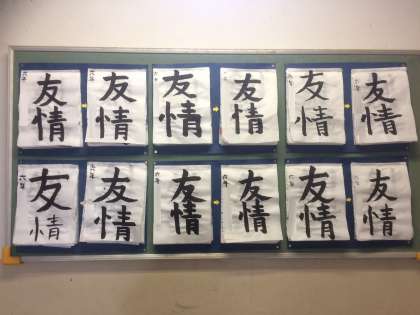 六年
友情
六年
友情
六年
友情
六年
友情
六年
友情
六年
友情
六年
友情
六年
友情
六年
友情
六年
友情
六年
友情
六年
友情